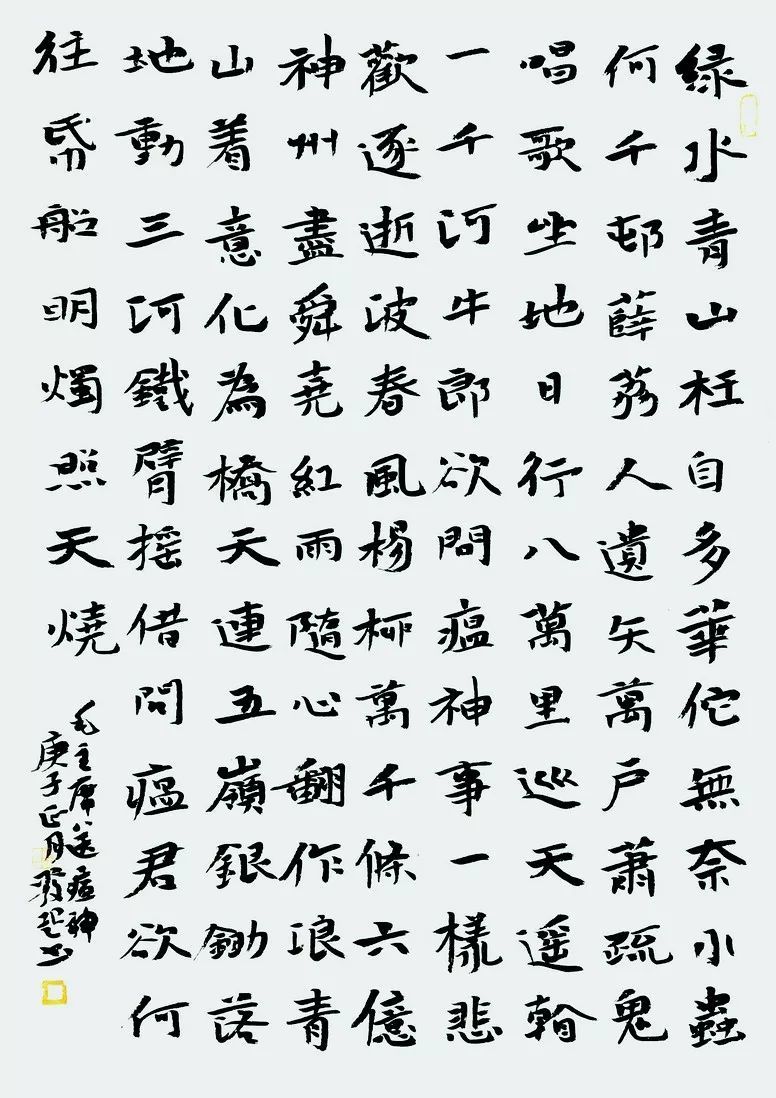 緑水青山枉自多華佗無奈小蟲
何千邨薜荔人遺矢萬戶蕭疏鬼
唱歌坐地日行八萬里巡天遥看
一千河牛郎欲問瘟神事一樣悲
歡逐逝波春風楊柳萬千條六億
神州盡舜堯紅雨隨心翻作浪青
山着意化為橋天連五嶺銀鋤落
地動三河鐵臂摇借問瘟君欲何
往帋船明燭照天燒
毛主席送瘟神
庚子正月